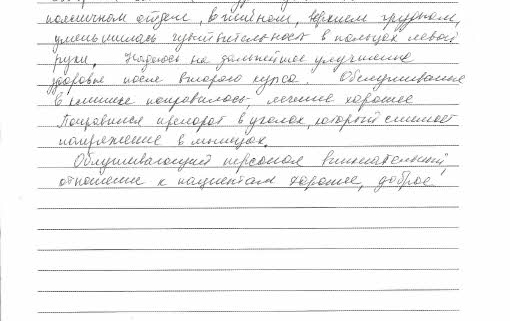 поясничном отделе, в шейном, верхнем грудном,
уменьшилась чувствительность в пальцах левой
руки. Надеюсь на дальнейшее улучшение
здоровья после второго курса. Обслуживание
в клинике понравилось, лечение хорошее
Понравился препарат в уколах, который снимает
напряжение в мышцах.
Обслуживающий персонал внимательный,
отношение к пациентам хорошее, доброе